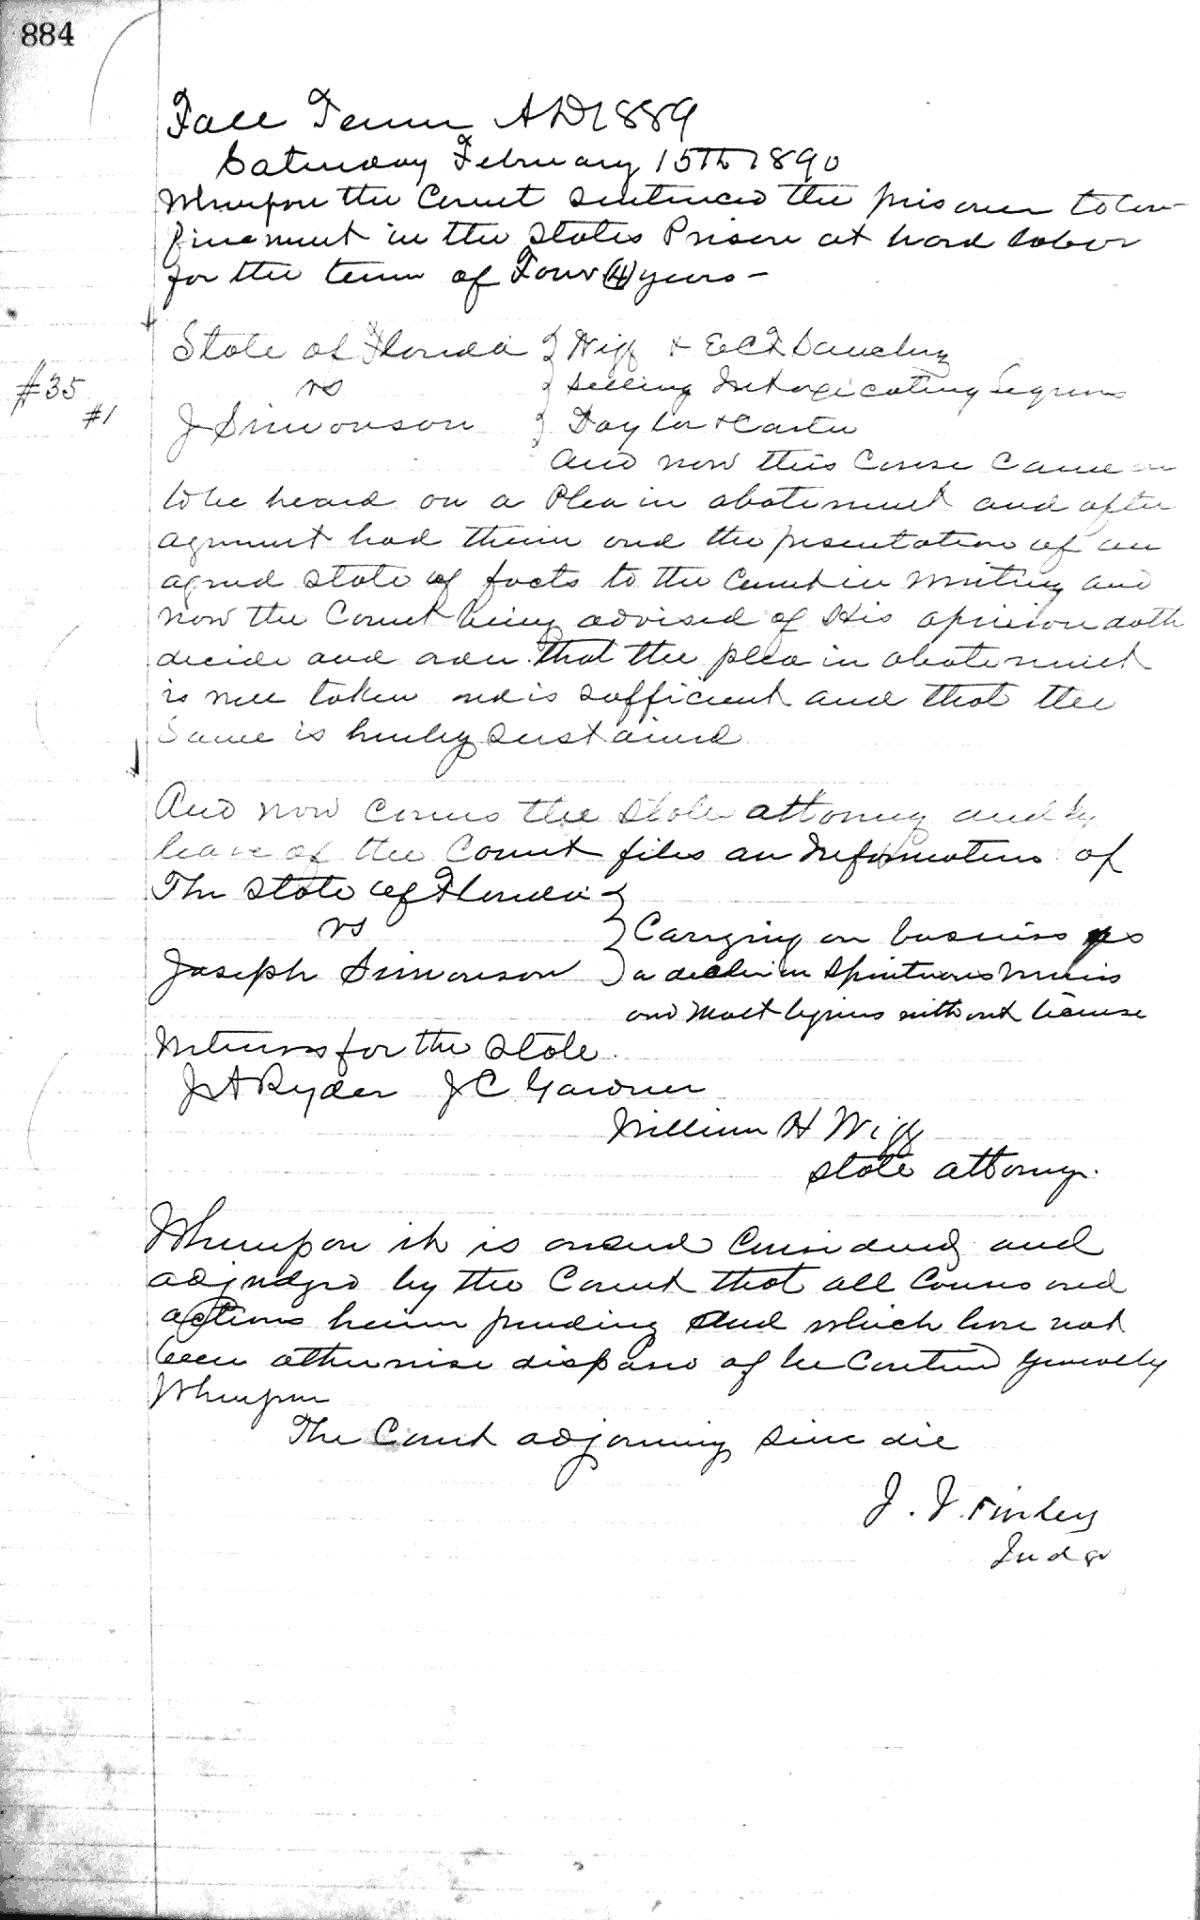 884
Fall Term AD 1889
Saturday February 15th 1890
Whereupon the Court sentenced the prisoner to con-
finement in the States Prison at hard labor
for the term of Four (4) years -
State of Florida } Wigg &
#35 vs } Selling Intoxicating Liquors
#1
J Simonson } Taylor & Carter
And now this Cause Came on
to be heard on a Plea in abatement and after
agrument had therein and the presentation of an
agreed state of facts to the Court in writing and
now the Court being advised of His opinion doth
decide and order that the plea in abatement
is well taken and is sufficient and that the
Same is hereby sustained
And now comes the State attorney and by
leave of the Court files an Information of
The State of Florida }
vs } Carrying on business as
Joseph Simonson } a dealer in Spirituous Wines
and Malt liquors without license
Witnesses for the State.
J A Ryder J C Gardner
William H Wigg
State attorney.
Whereupon it is ordered Considered and
adjudged by the Court that all Causes and
actions herein pending and which have not
been otherwise disposed of be Continued generally
Whereupon
The Court adjourning sine die
J. J. Finley
Judge